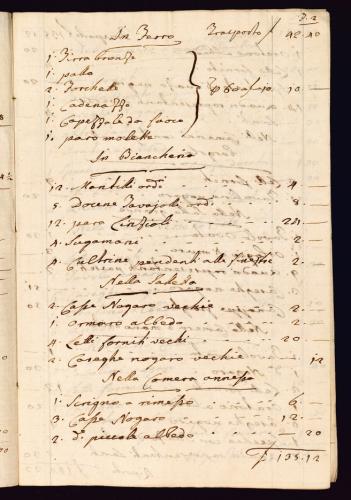 In Ferro Trasporto 42.40
1. Ferro bronzo
1. palla
2. Forchette in Solaio 10 —
1. Cadenazzo
1. Capezzale da fuoco
1. paro molette
In Biancheria
12. Mantili ord. 4 —
5. Docene Tavajoli ord. 8 —
12. para Linzioli 24 —
4. Sugamani 2 —
4. Cultrine pendenti alle finestre 2 —
Nella Saletta
2. Casse Nogaro vechie 2 —
1. Ormaro albedo 2 —
4. Letti forniti vechi 20 —
2. Careghe nogaro vechie — 12
Nella Camera annessa
1. Scrigno a rimesso 6 —
3. Casse Nogaro 12 —
2. d. piccole albedo — 20
135.12